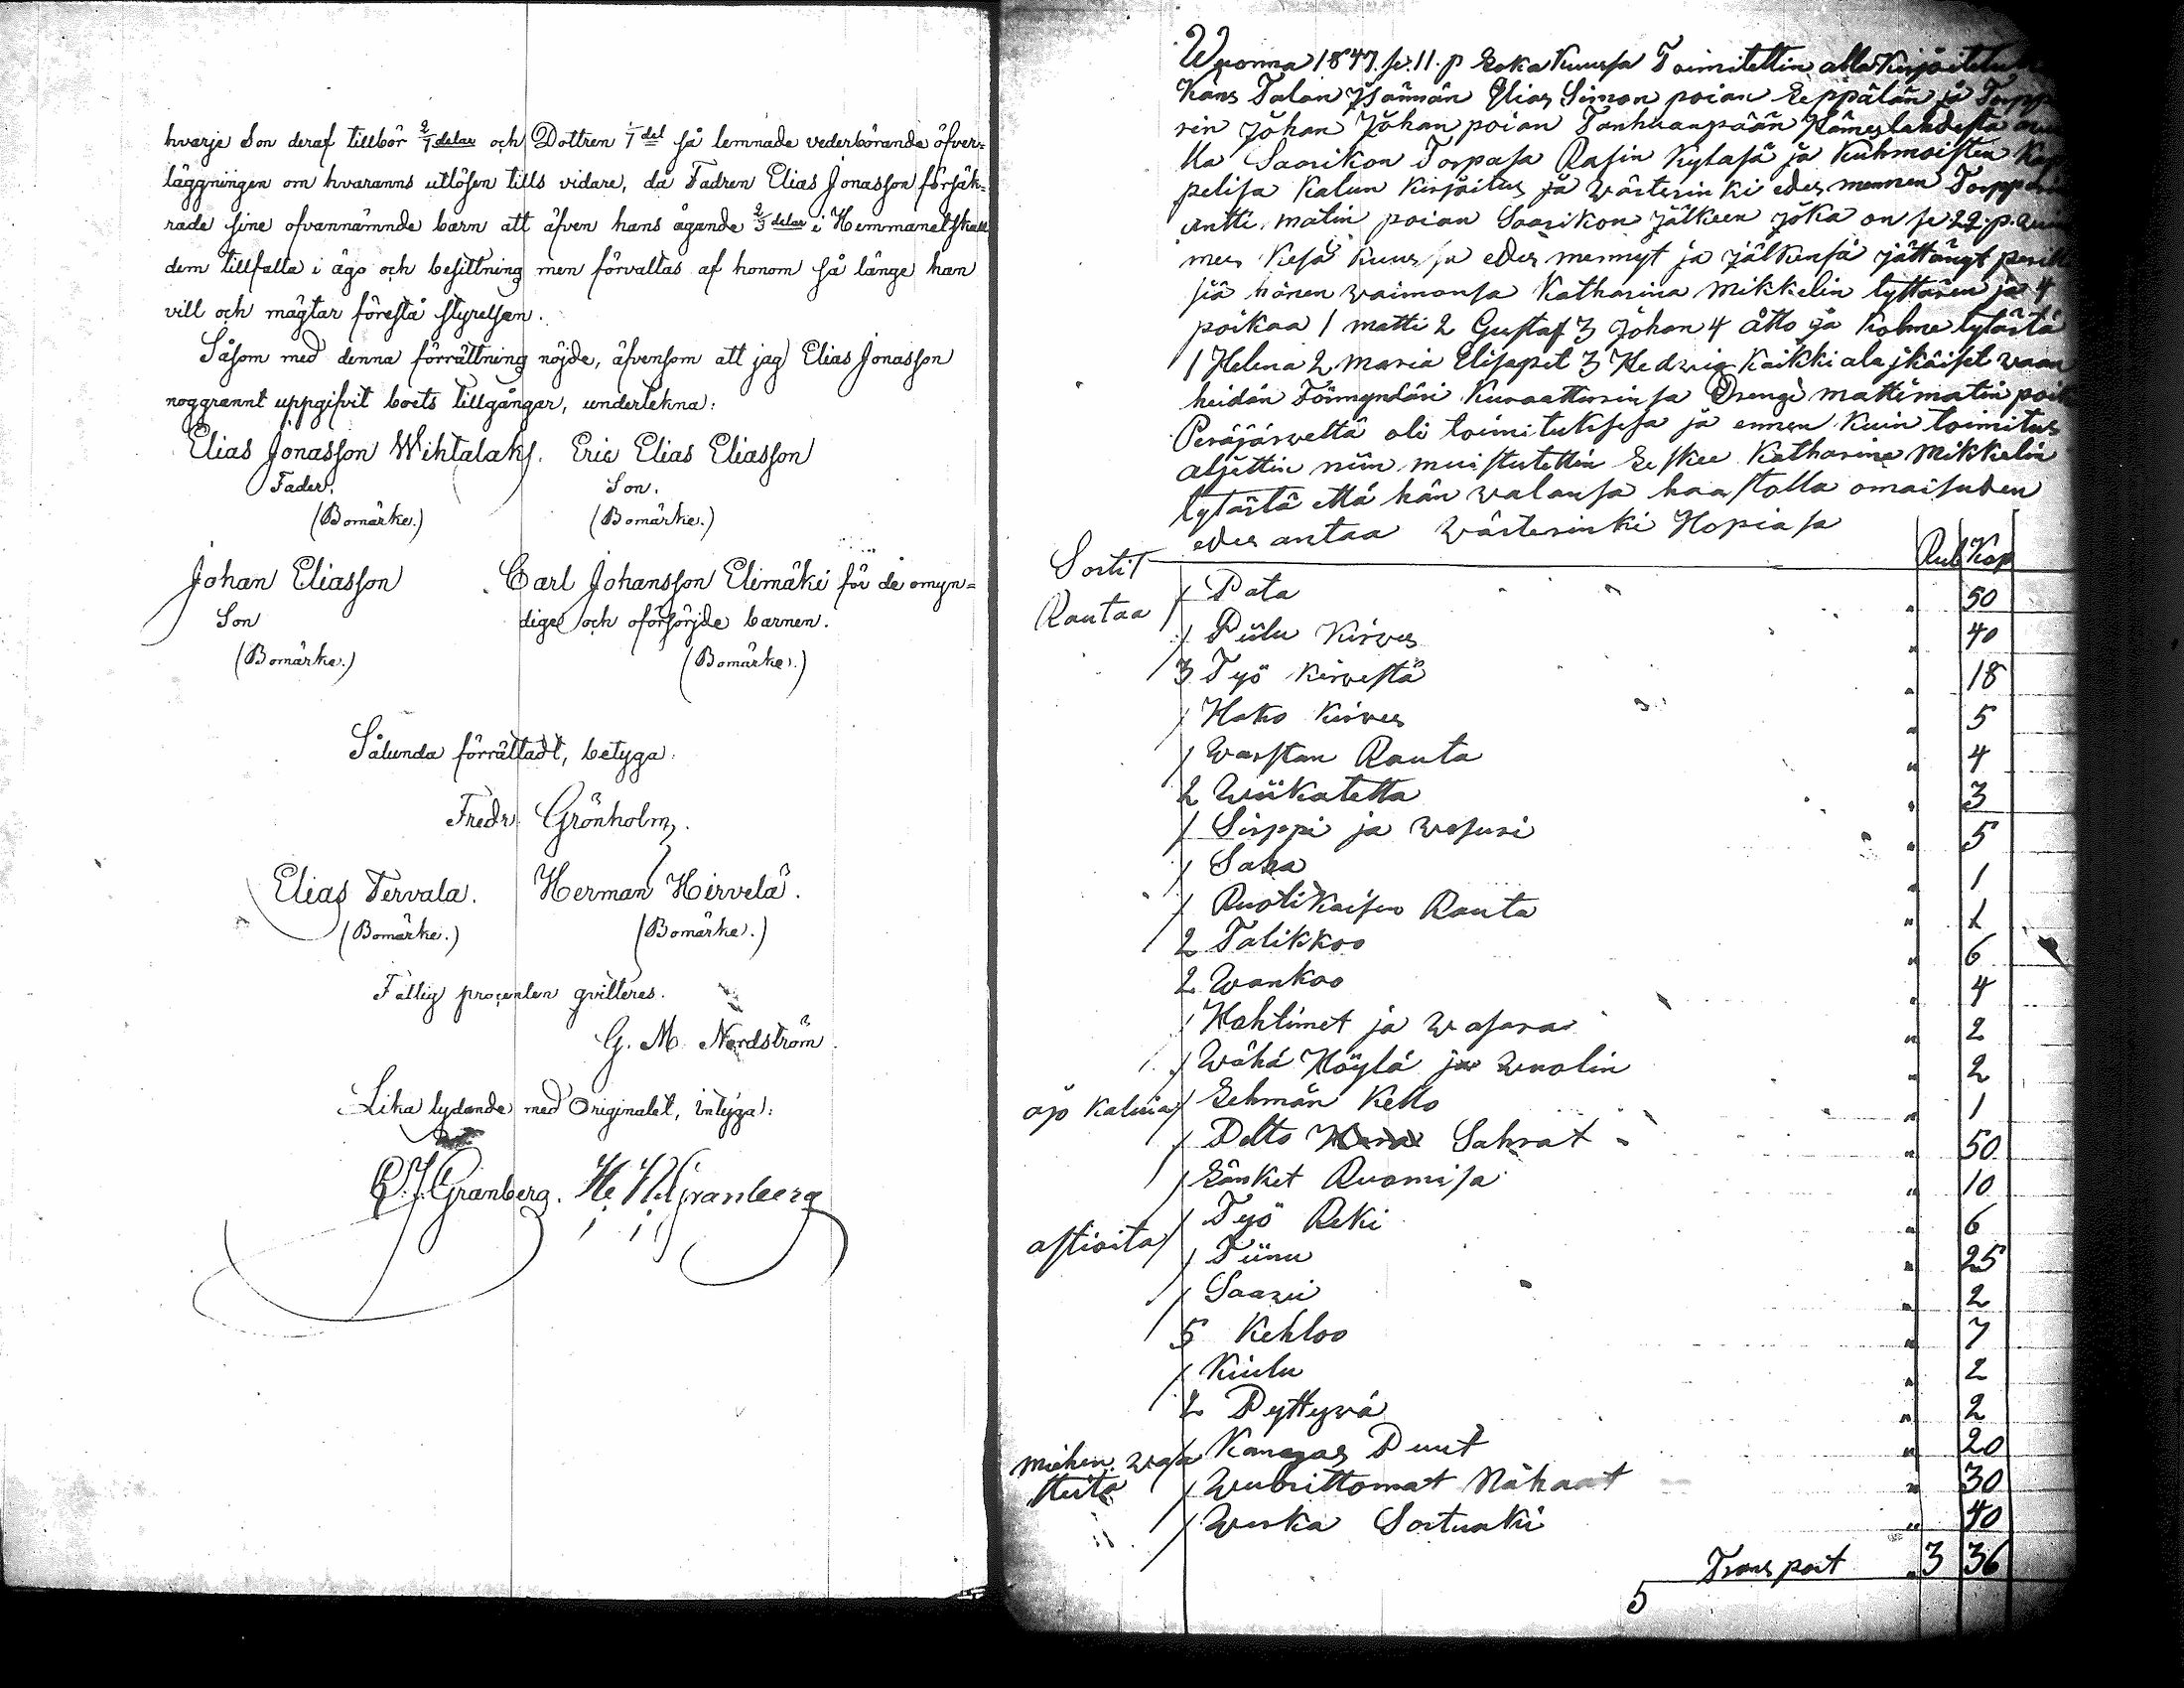 hvarje Son deraf tillbör 2/7 delar och Dottren 1/7 del så lemnade vederbörande öfver=
läggningen om hvaranns utlösen tills vidare, då Fadren Elias Jonasson försäk=
rade sine ofvannämnde barn att äfven hans ägande 2/3 delar i Hemmanet skall
dem tillfalla i ägo och besittning men förvaltas af honom så länge han
vill och mägtar förestå styrelsen.
Såsom med denna förrättning nöjde, äfvensom att jag Elias Jonasson
noggrannt uppgifvit boets tillgångar, underteкna:
Elias Jonasson Wihtalaks. Eric Elias Eliasson
Fader. Son.
(Bomärke.) (Bomärke.)
Johan Eliasson Carl Johansson Elimäki för de omyn=
Son dige och oförsörjde barnen.
(Bomärke.) (Bomärke.)
Sålunda förrättadt, betyga:
Fredr. Grönholm.
Elias Tervala. Herman Hirvelä.
(Bomärke.) (Bomärke.)
Fattig procenten qvitteres.
G. M. Nordström
Lika lydande med Originalet, intyga:
Granberg. Granberg
Wuonna 1847. se. 11. p Loka Kuussa Toimitettin alla Kirjoitetu
Kans Talon Jsännän Elias Simon poian Seppälän ja Torppa
rin Johan Johan poian Tanhuanpään Hämeslahdesta
lla Saarikon Torpasa Rasin Kylasä ja Kuhmoisten Kap
pelisa Kalun Kirjoitus ja wärterinki edes mennen Torpparin
antti matin poian Saarikon jälkeen joka on se 22. p. wii
mes Kesä Kuussa edes mennyt ja jälkensä jättänyt perilli
siä hänen waimonsa Katharina Mikkelin tyttären ja 4
poikaa 1 matti 2 Gustaf 3 Johan 4 åtto ja Kolme tytärtä
1 Helena 2 Maria Elisapet 3 Hedwig Kaikki ala jkäiset waan
heidän Förmyndäri Kuraattorinsa Drengi matti matin poika
Peräjärweltä oli toimituksesa ja ennen Kuin toimitus
aljettin niin muistutettin Leskee Katharina Mikkelin
tytärtä että hän walansa haastolla omaisuden
edes antaa wärterinki Hopiasa
Sortit Rub Kop
Rautaa 1 Pata " 50
1 Piilu Kirwes " 40
3 Työ Kirwestä " 18
1 Hako Kirwes " 5
1 warstan Rauta " 4
2 Wiikatetta " 3
1 Sirppi ja wesuri " 5
1 Saha " 1
1 Rauta " 1
2 Talikkoo " 6
2 Wankoo " 4
1 Hohtimet ja wasara " 2
1 wähä Höylä ja wuolin " 2
ajo Kaluia 1 Lehmän Kello " 1
1 Pelto Sahrat " 50
1 Länket Ruomisa " 10
1 Työ Reki " 6
astioita 1 Tiinu " 25
1 Saawi " 2
5 Kehloo " 7
1 Kiulu " 2
2 Pyttywä " 2
1 Kangas Puut " 20
miehen waa 1 wuorittomat Nahaat " 30
tteita 1 werka Sortuuki " 40
Transport " 3 36
5